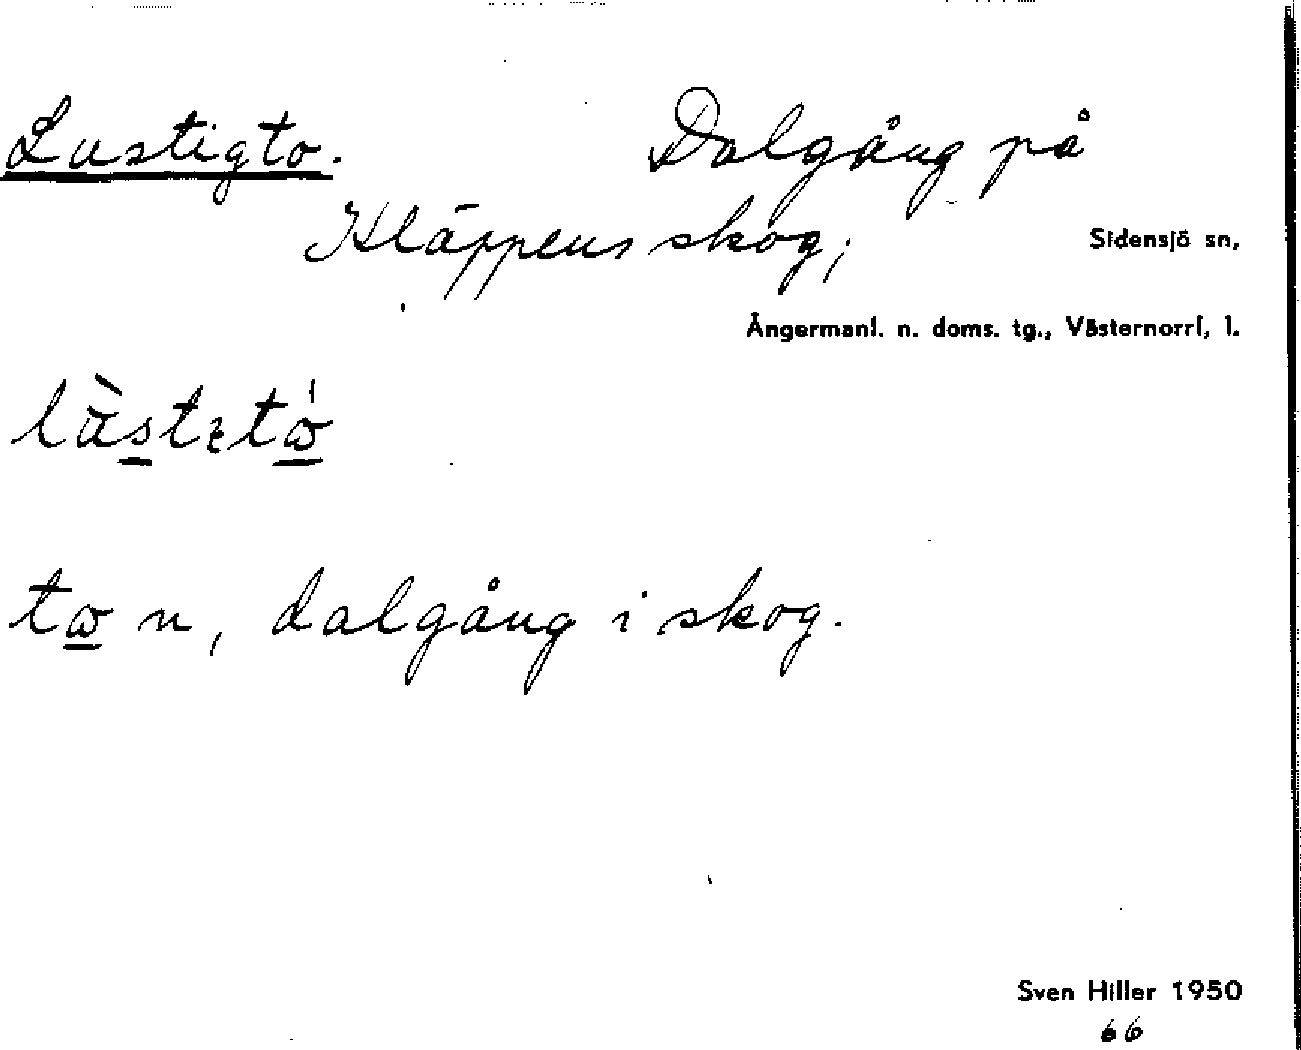 Lustigto. Dalgång på
Kläppens skog;
Sidensjö sn,
Ångermanl. n. doms. tg., Västernorrl, l.
n, dalgång i skog.
Sven Hiller 1950
66